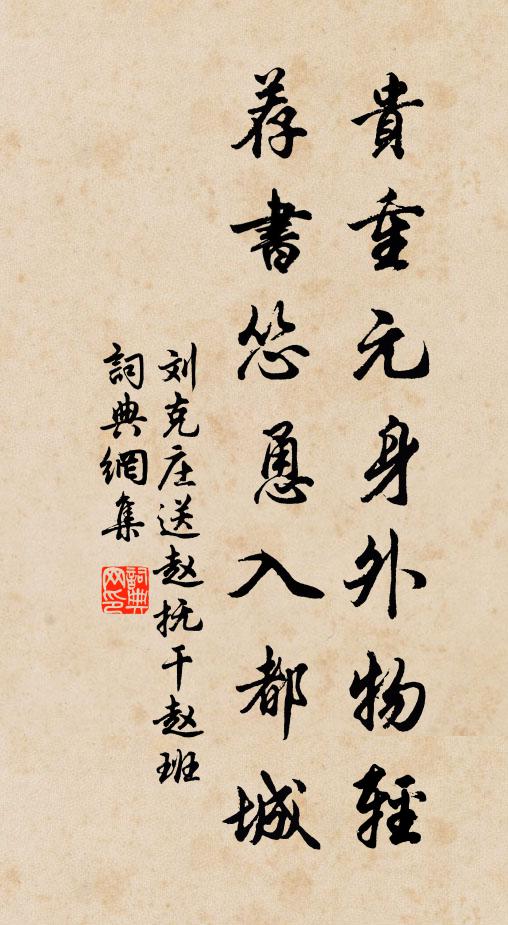 貴重元身外物輕
荐書怂恿入都城
刘克庄送赵抚干赵班
詞典網集
詞典
网印